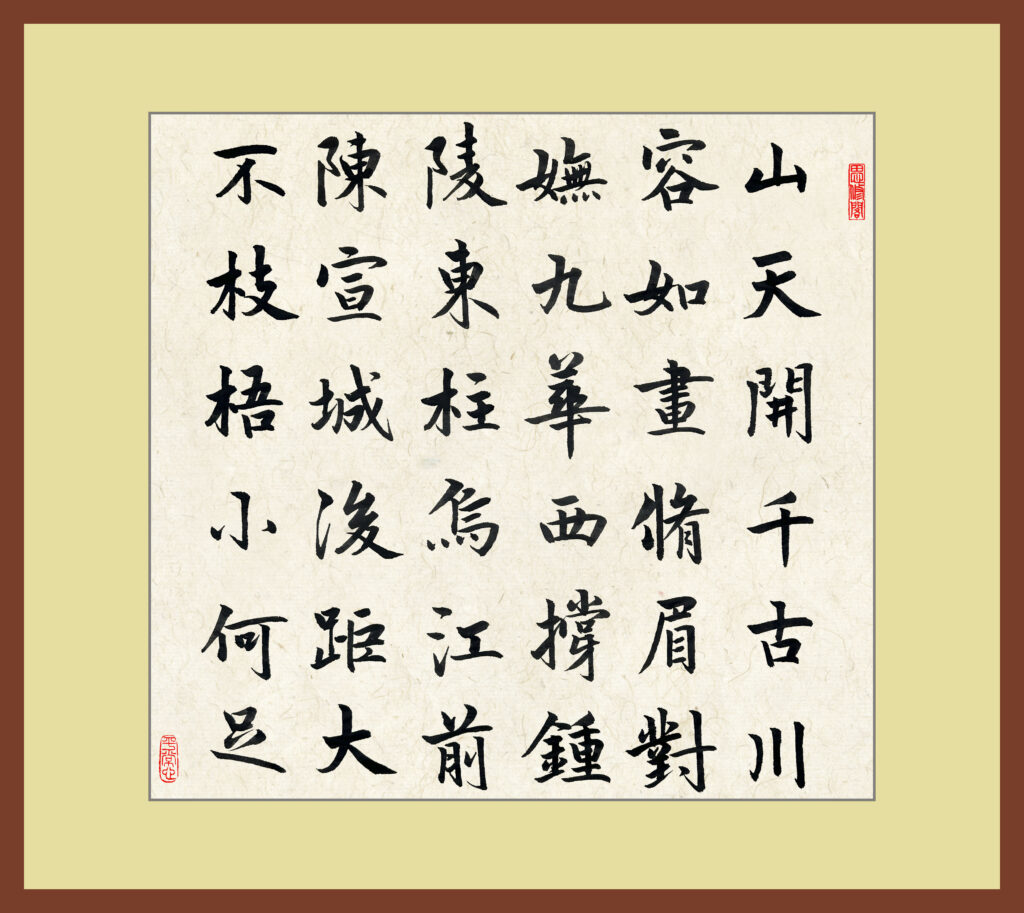 思修閣
山天開千古川
容如畫脩眉對
嫵九華西撐鍾
陵東柱烏江前
陳宣城後距大
不枝梧小何足
平常心